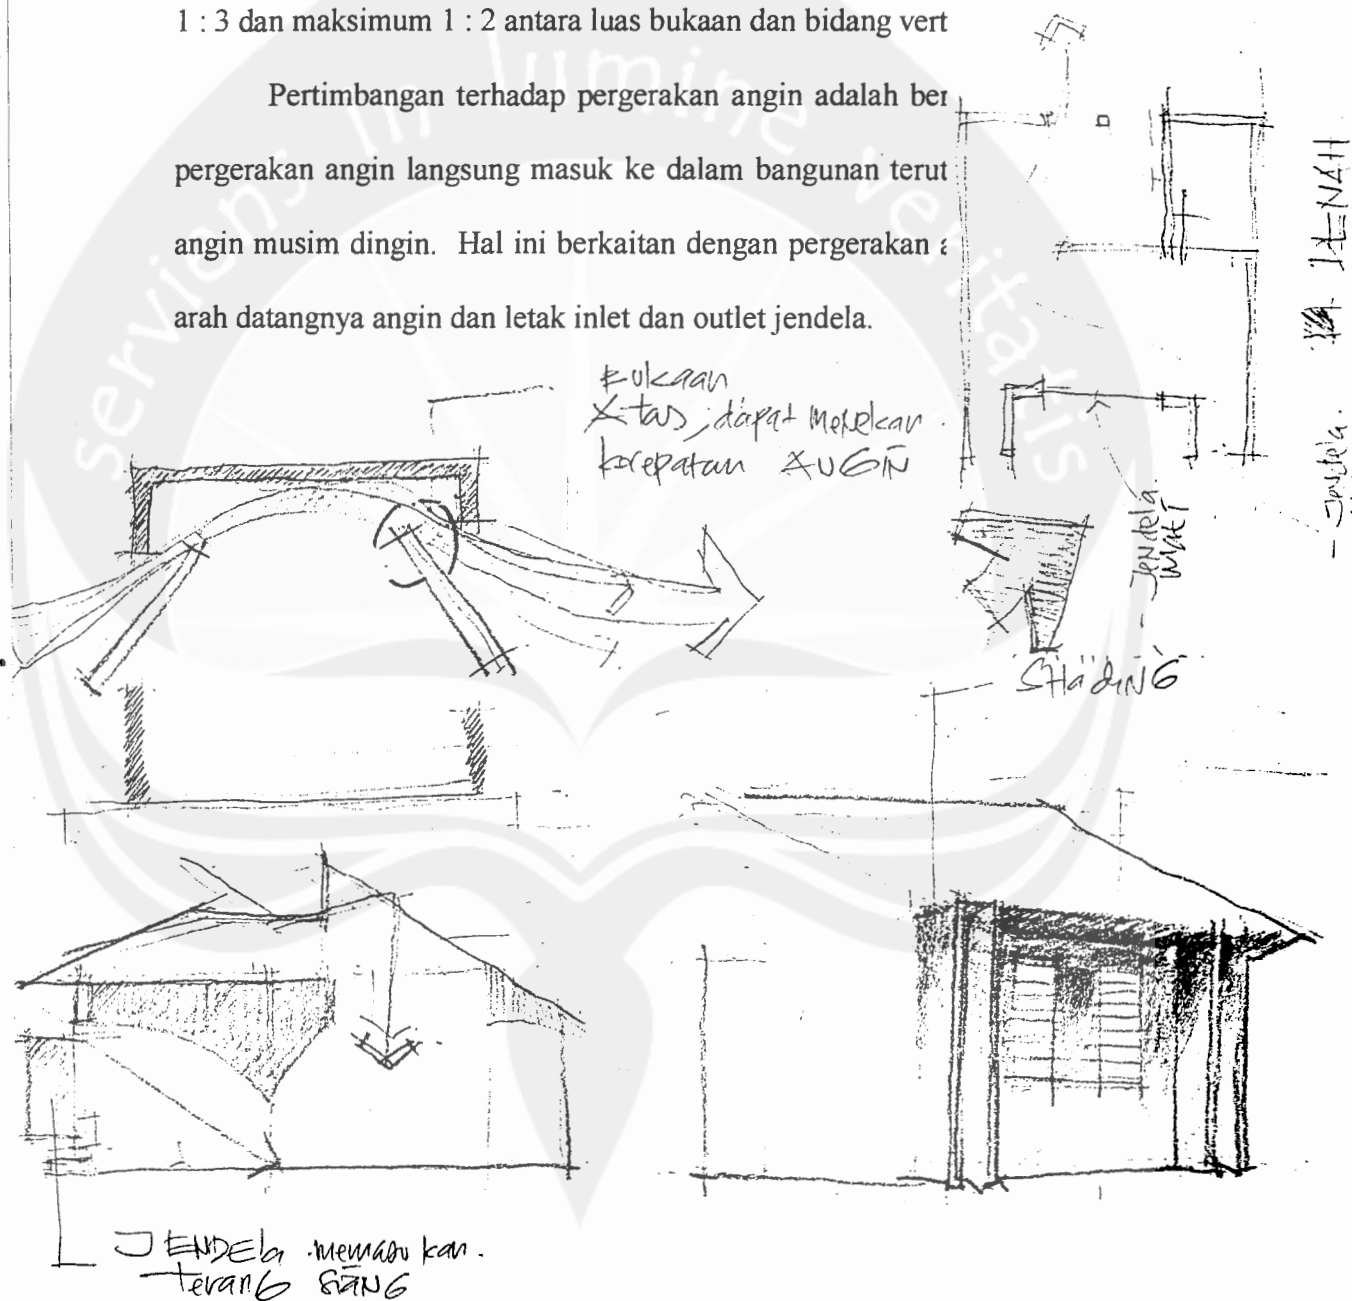 1 : 3 dan maksimum 1 : 2 antara luas bukaan dan bidang vert
Pertimbangan terhadap pergerakan angin adalah ber
pergerakan angin langsung masuk ke dalam bangunan terut
angin musim dingin. Hal ini berkaitan dengan pergerakan a
arah datangnya angin dan letak inlet dan outlet jendela.
serviens in lumine veritatis
Bukaan
Atas, dapat menekan
kecepatan ANGIN
- Jendela
Mati
- Jendela.
SHadiNG
JENDEla memasukan.
teranG SiaNG